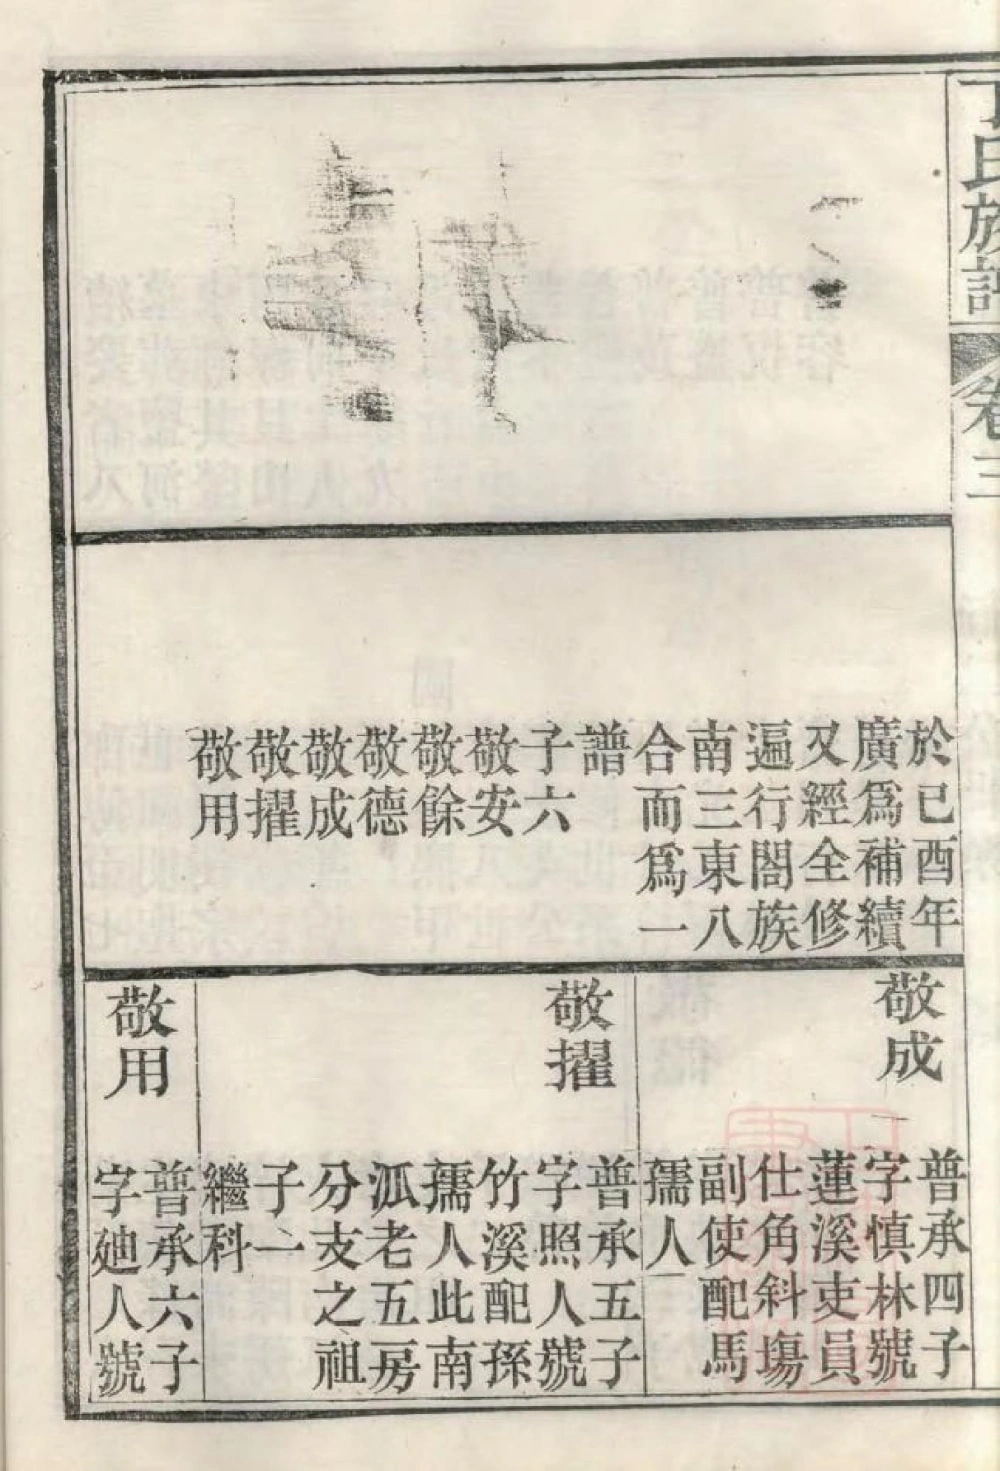 丁氏族譜
卷三
於已酉年
廣爲補續
又經全修
遍行閤族
南三東八
合而爲一
譜
子六
敬安
敬餘
敬德
敬成
敬擢
敬用
敬成
普承四子
字慎林號
蓮溪吏員
仕角斜塲
副使配馬
孺人
敬擢
普承五子
字照人號
竹溪配孫
孺人此南
派老五房
分支之祖
子一
繼科
敬用
普承六子
字廸人號